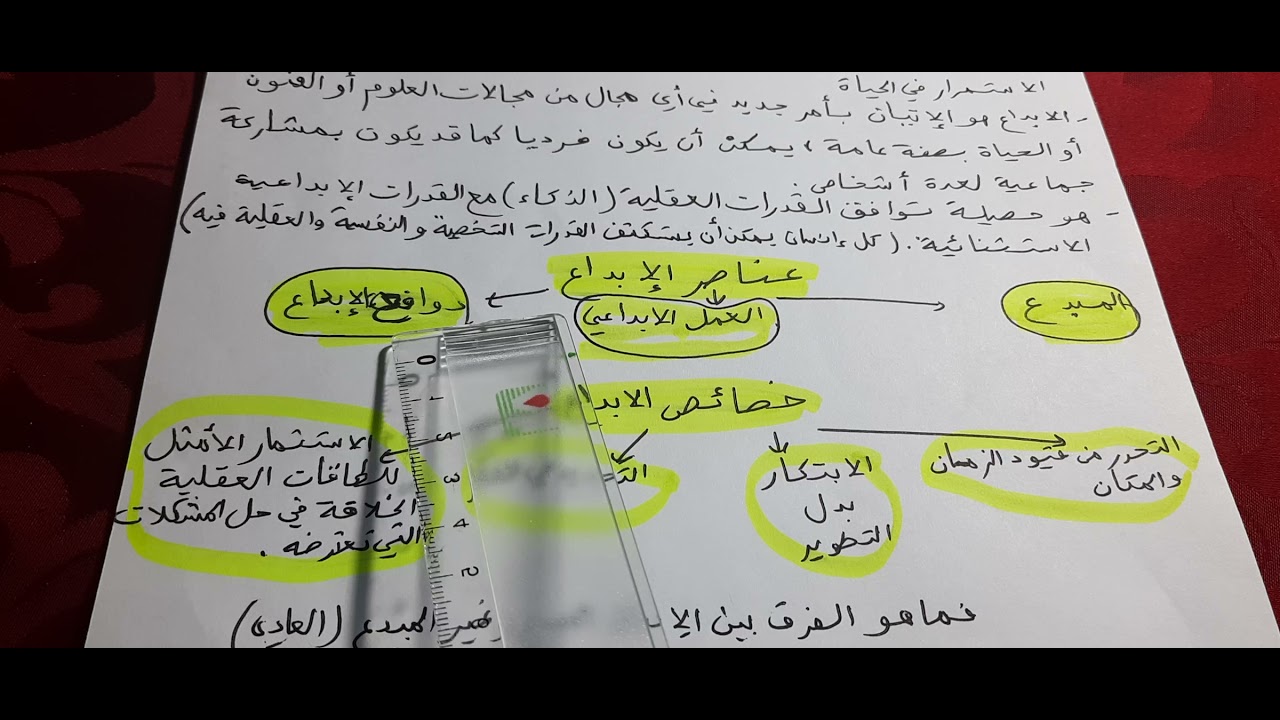 الاستمرار في الحياة
- الابداع هو الإتيان بأمر جديد في أي مجال من مجالات العلوم أو الفنون
أو الحياة بصفة عامة، يمكن أن يكون فرديا كما قد يكون بمشاركة
جماعية لعدة أشخاص.
- هو حصيلة توافق القدرات العقلية (الذكاء) مع القدرات الإبداعية
الاستثنائية. (كل إنسان يمكن أن يستكشف القدرات الشخصية والنفسية والعقلية فيه)
عناصر الإبداع
المبدع
العمل الابداعي
دوافع الإبداع
خصائص الابدا
التحرر من قيود الزمان
والمكان
الابتكار
بدل
التطوير
الاستثمار الأمثل
للطاقات العقلية
الخلاقة في حل المشكلات
التي تعترضه.
0
1
3
4
فما هو الفرق بين الإ غير المبدع (العادي)